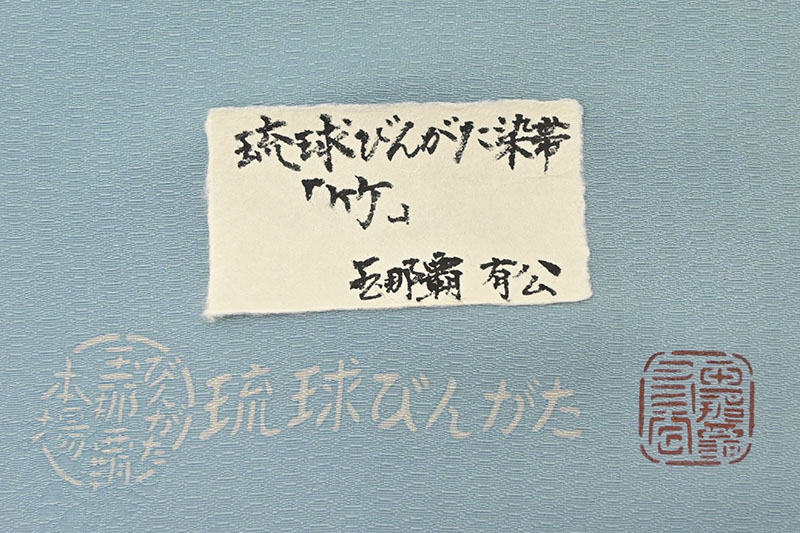 琉球びんがた染帯
「竹」
玉那覇 有公
びんがた
玉那覇
本場
琉球びんがた